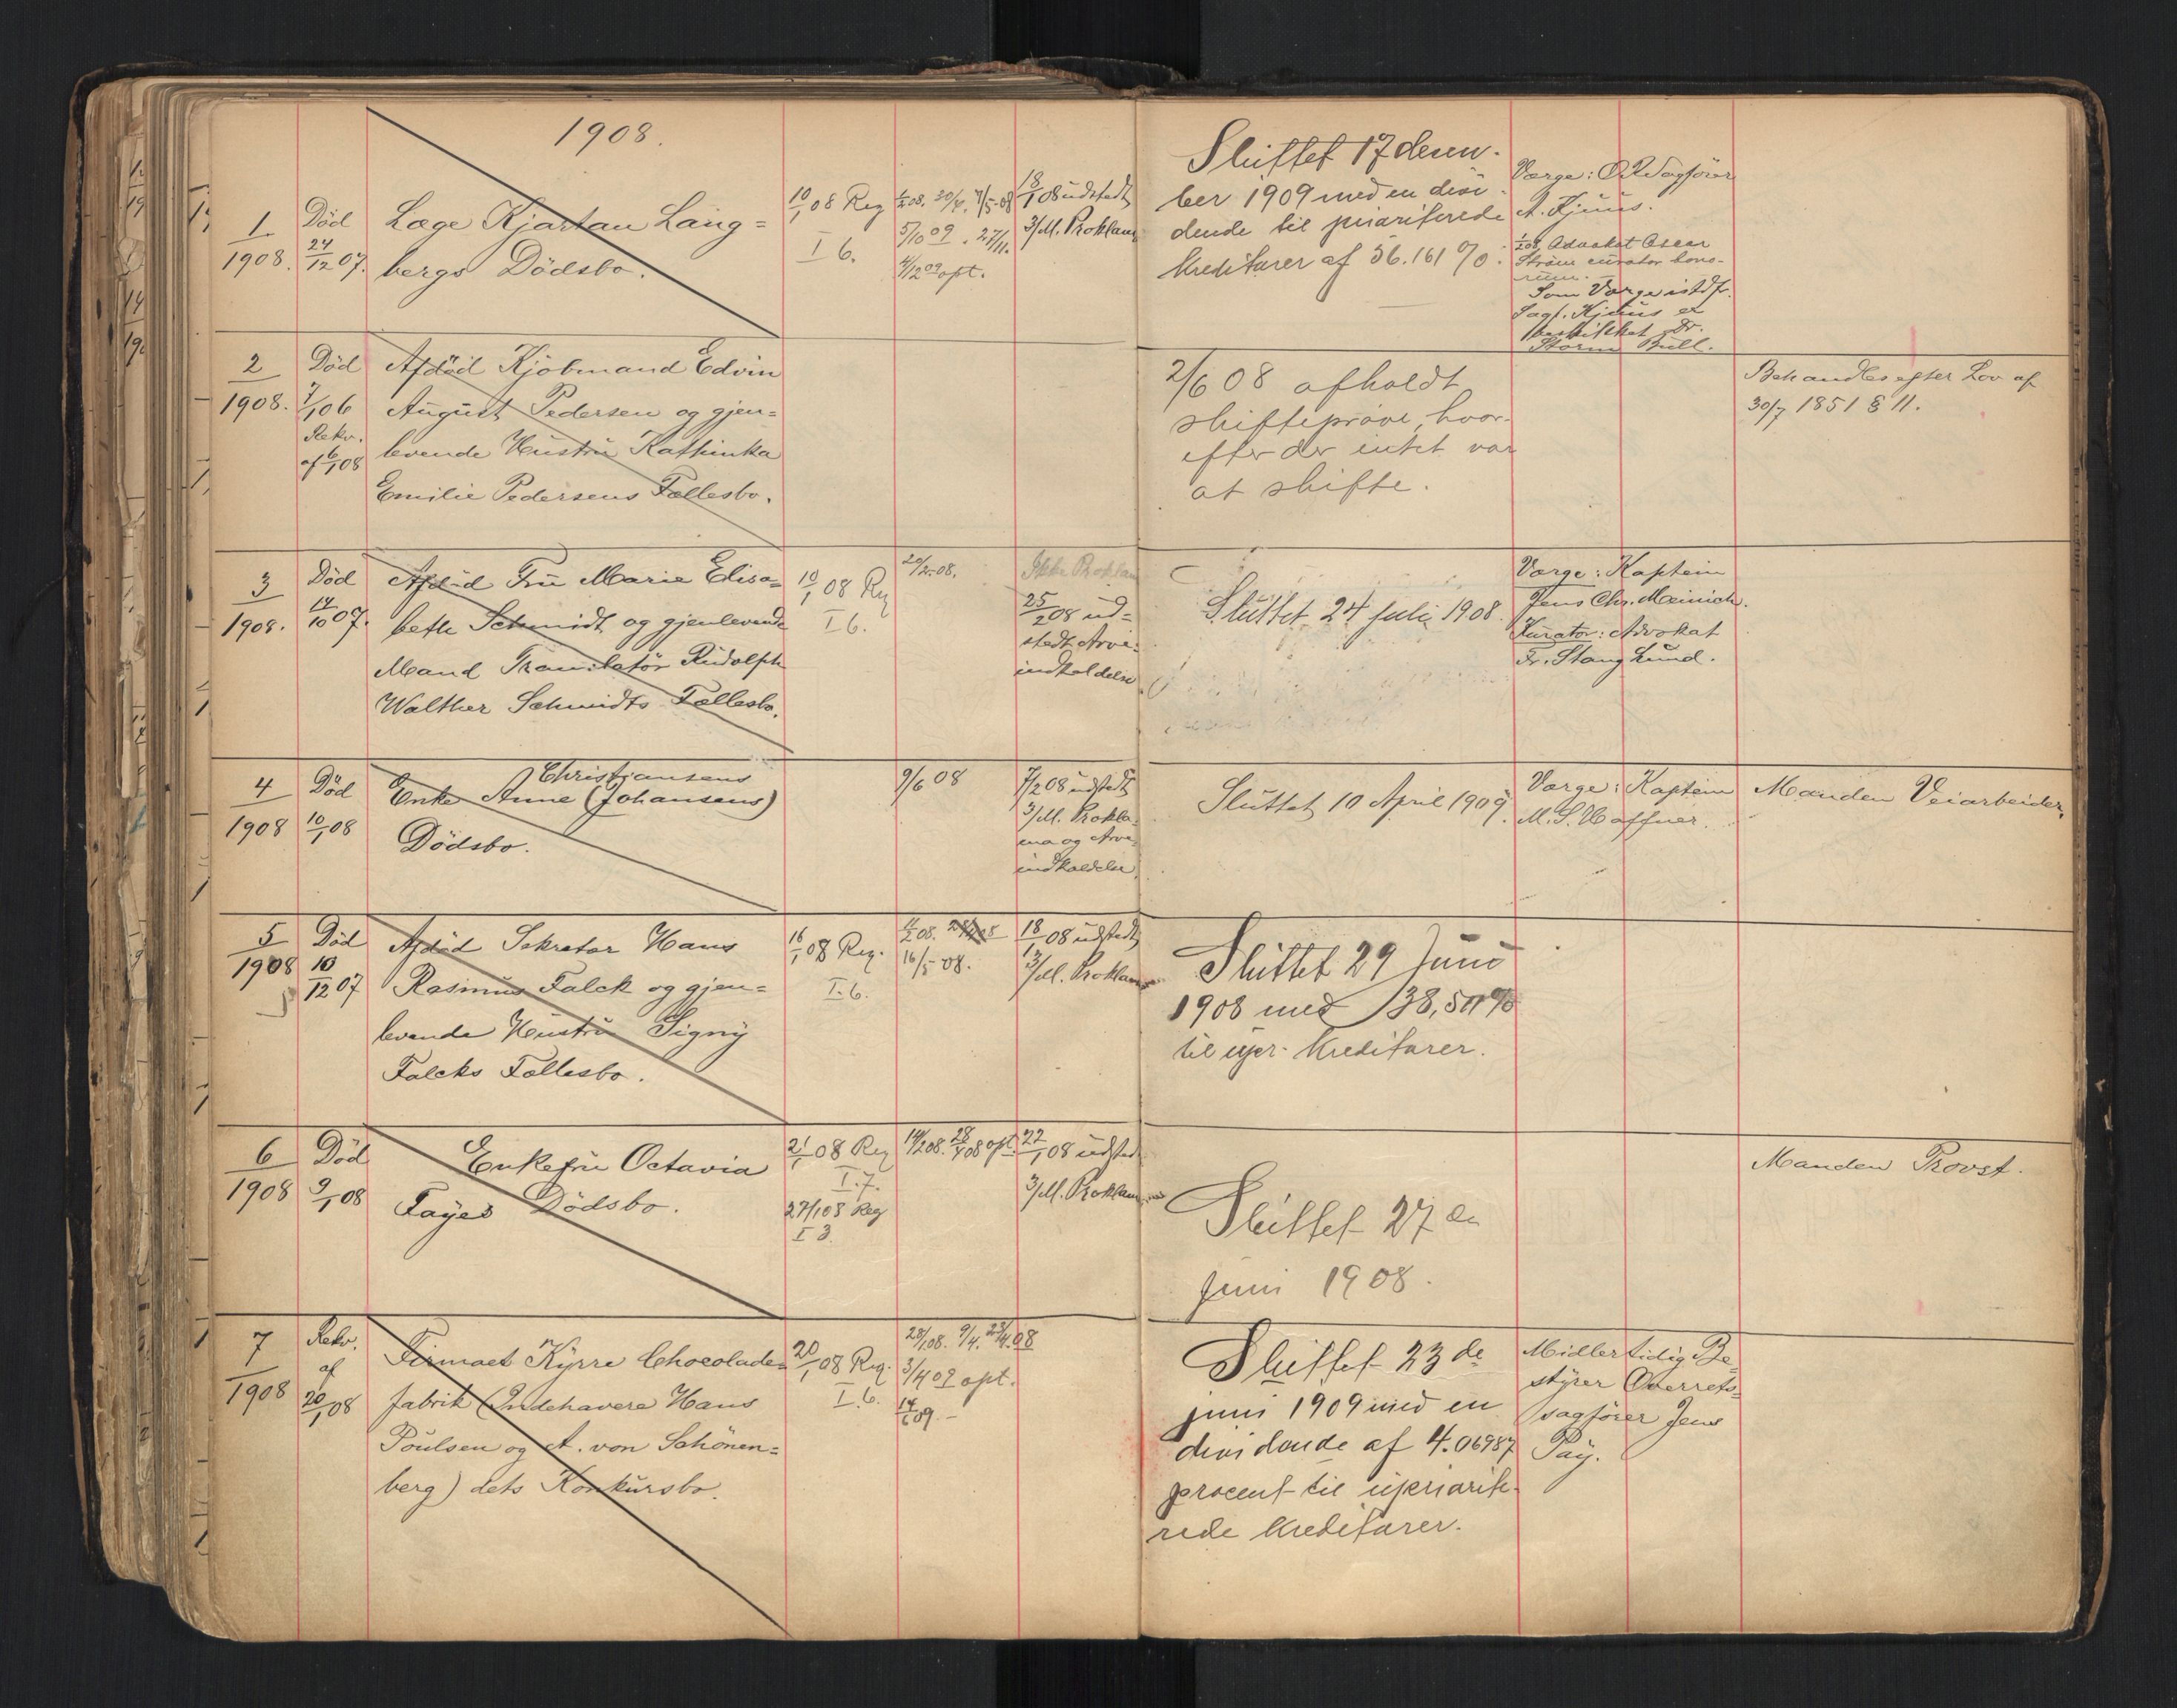 1908.
1.
1908.
Död
24/12 07.
Læge Kjartan Lang=
bergs Dödsbo.
10/1 08 Reg
I 6.
1/2 08. 30/4. 7/5-08
5/10 09. 27/11.
4/12 09 opt.
18/1 08 udstedt
3/M. Proklama
Sluttet 17 decem-
ber 1909 med en divi-
dende til prioriterede
kreditorer af 56.161 %.
Værge: O.R.Sagförer
A. Kjuus.
1/2 08, Advokat Oscar
Ström curator bono-
rum.
Som Værge istdfr.
Sagf. Kjuus er
beskikket Dr.
Storm Bull.
2
1908.
Död
7/1 06
Rekv.
af 6/1 08
Afdöd Kjöbmand Edvin
August Pedersen og gjen=
levende Hustru Kathinka
Emilie Pedersens Fællesbo.
2/6 08 afholdt
skifteprøve, hvor-
efter der intet var
at skifte.
Behandles efter Lov af
30/7 1851 § 11.
3
1908.
Död
14/10 07.
Afdöd Fru Marie Elisa=
beth Schmidt og gjenlevende
Mand Translatör Rudolph
Walther Schmidts Fællesbo.
10/1 08 Reg
I 6.
20/2-08.
Ikke Proklam
25/2 08 ud=
stedt Arve=
indkaldelse
Sluttet 24 juli 1908.
Værge: Kaptein
Jens Chr. Meinich.
Kurator: Advokat
Fr. Stang Lund.
4
1908
Död
10/1 08
Christiansens
Enke Anne (Johansens)
Dödsbo.
9/6 08
7/2 08 udstedt
3/M. Prokla-
ma og Arve-
indkaldelse.
Sluttet 10 April 1909.
Værge: Kaptein
M. S. Haffner.
Manden Veiarbeider.
5
1908
Död
10/12 07
Afdöd Sekretær Hans
Rasmus Falck og gjen=
levende Hustru Signy
Falcks Fællesbo.
16/1 08 Reg.
I. 6.
16/5-08.
18/1 08 udstedt
3/M. Proklama
Sluttet 29 Juni
1908 med 38,50%
til uper. kreditorer.
6
1908
Död
9/1 08
Enkefru Octavia
Fayes Dödsbo.
21/1 08 Reg
I. 7.
27/1 08 Reg
I 3.
14/2 08. 28/4 08 opt.
22/1 08 udstedt
3/M. Proklama
Sluttet 27 en
juni 1908.
Manden Provst.
7
1908
Rekv.
af
20/1 08
Firmaet Kyrre Chocolade=
fabrik (Indehavere Hans
Poulsen og A. von Schönen=
berg) dets Konkursbo.
20/1 08 Reg.
I. 6.
28/1 08. 9/4. 23/4 08
3/4 09 opt.
Sluttet 23 de
juni 1909 med en
dividende af 4.06987
procent til upriorite-
rede kreditorer.
Midlertidig Be=
styrer Overrets=
sagförer Jens
Pay.